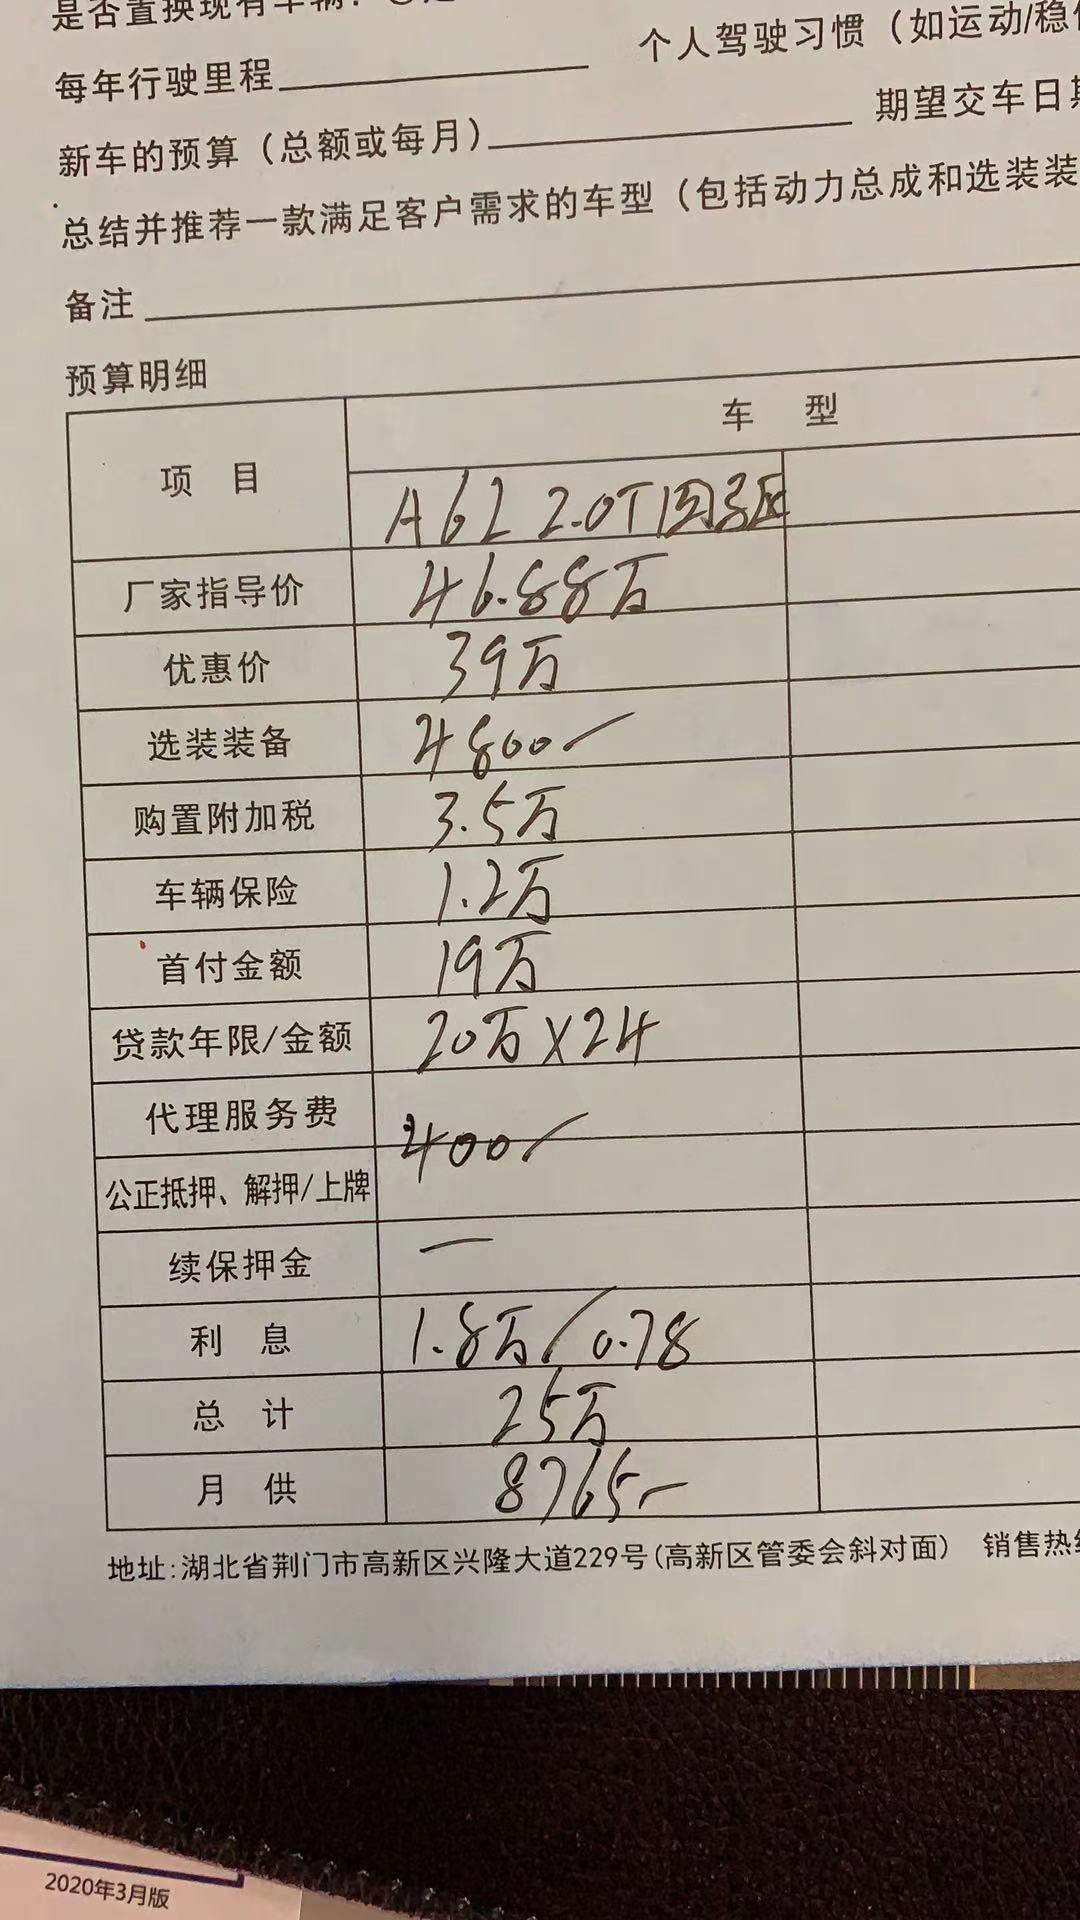 是否置换现有车辆？
每年行驶里程 个人驾驶习惯（如运动/稳
新车的预算（总额或每月） 期望交车日期
总结并推荐一款满足客户需求的车型（包括动力总成和选装装
备注
预算明细
项 目 车 型
A6L 2.0T 四驱
厂家指导价 46.88万
优惠价 39万
选装装备 4800
购置附加税 3.5万
车辆保险 1.2万
首付金额 19万
贷款年限/金额 20万×24
代理服务费 400
公正抵押、解押/上牌
续保押金 —
利 息 1.8万/0.78
总 计 25万
月 供 8765
地址:湖北省荆门市高新区兴隆大道229号(高新区管委会斜对面) 销售热
2020年3月版